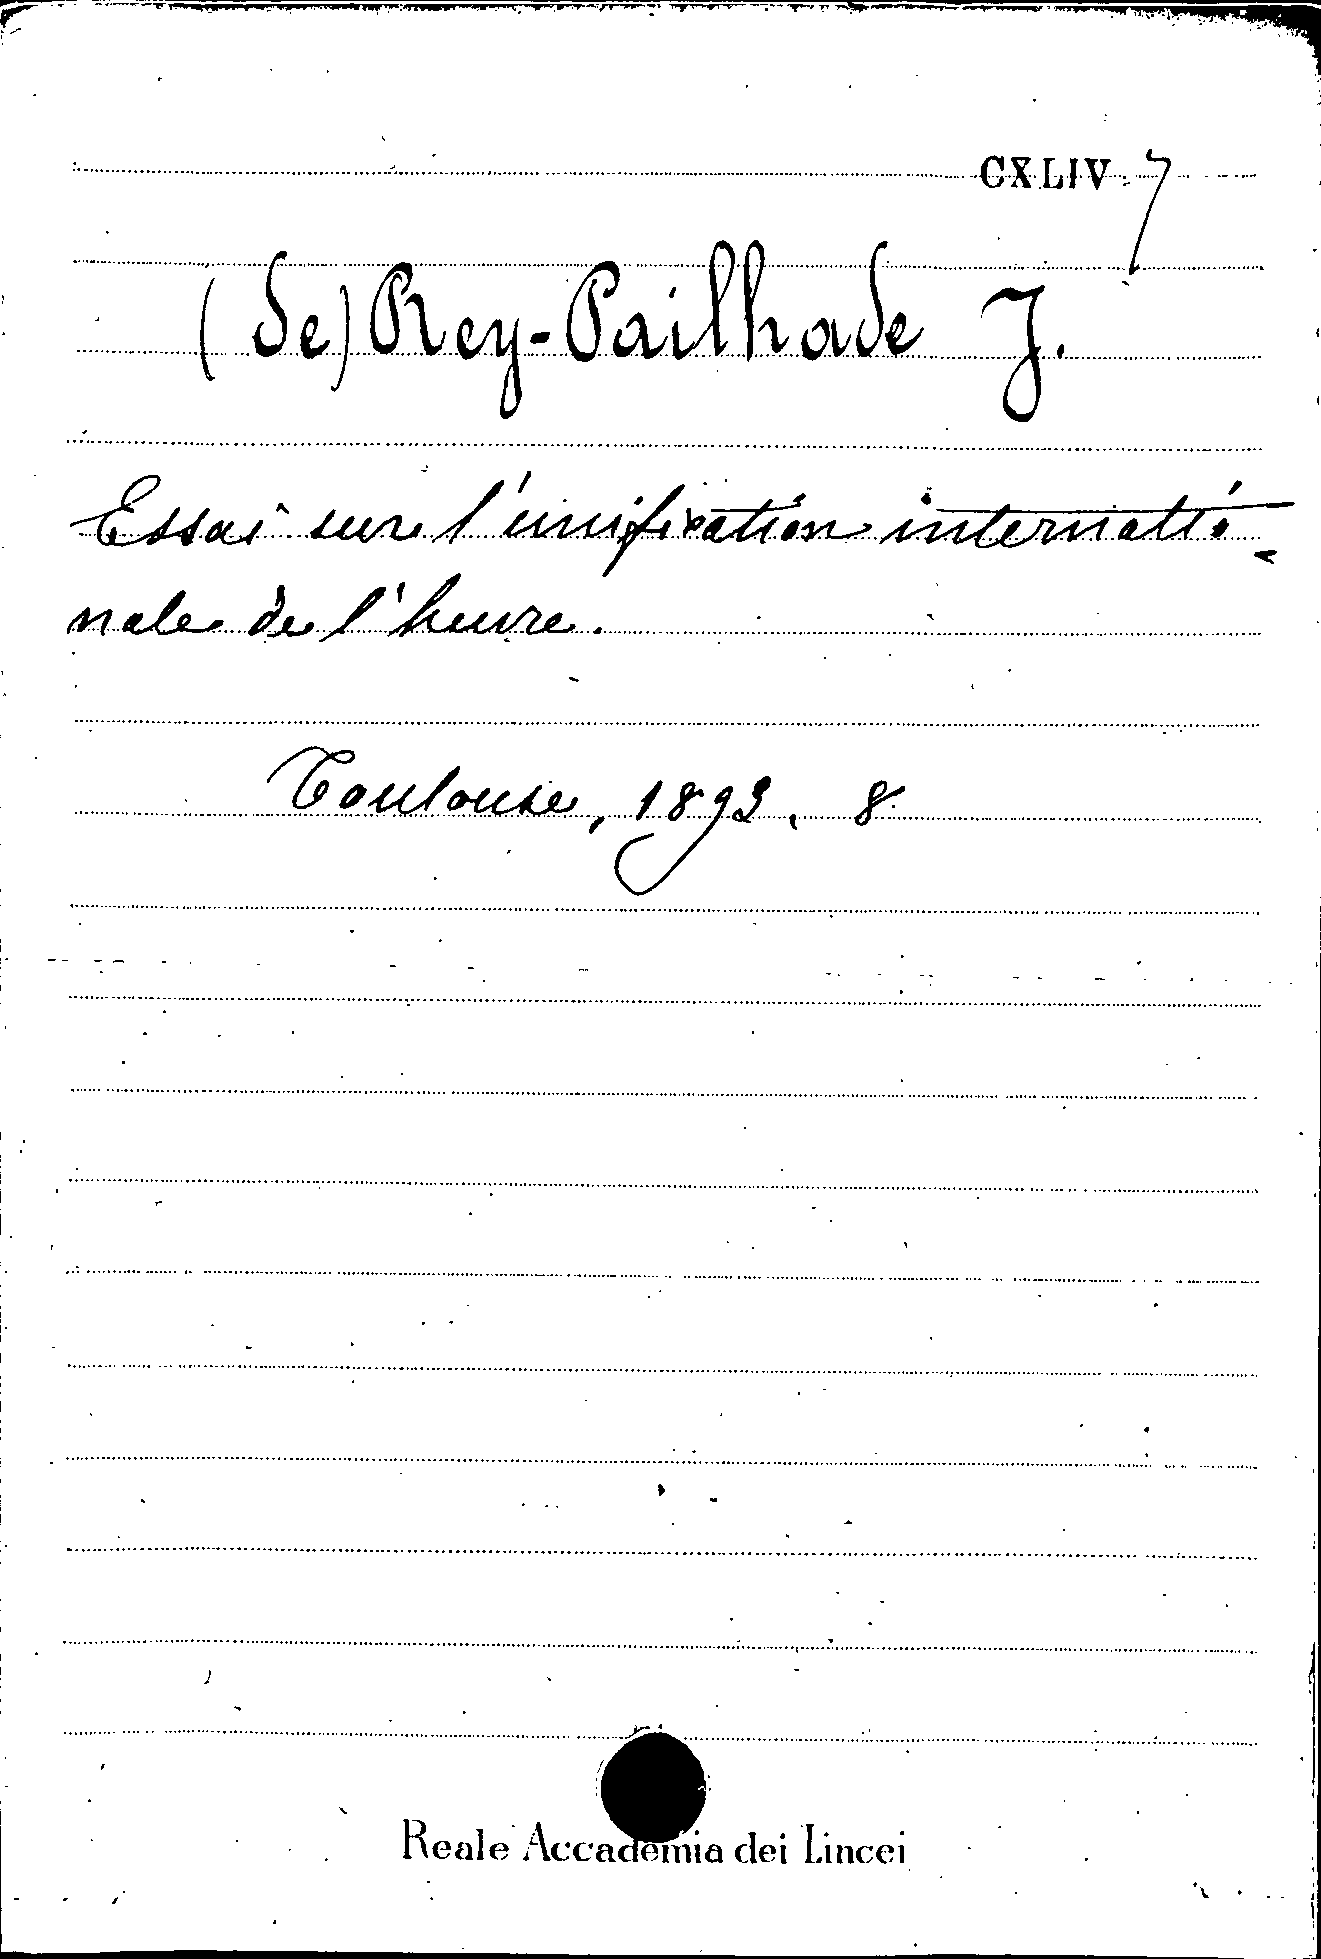 CXLIV 7
(de) Rey-Pailhade J.
Essai sur l'unification internatio-
nale de l'heure.
Toulouse, 1893. 8.
Reale Accademia dei Lincei